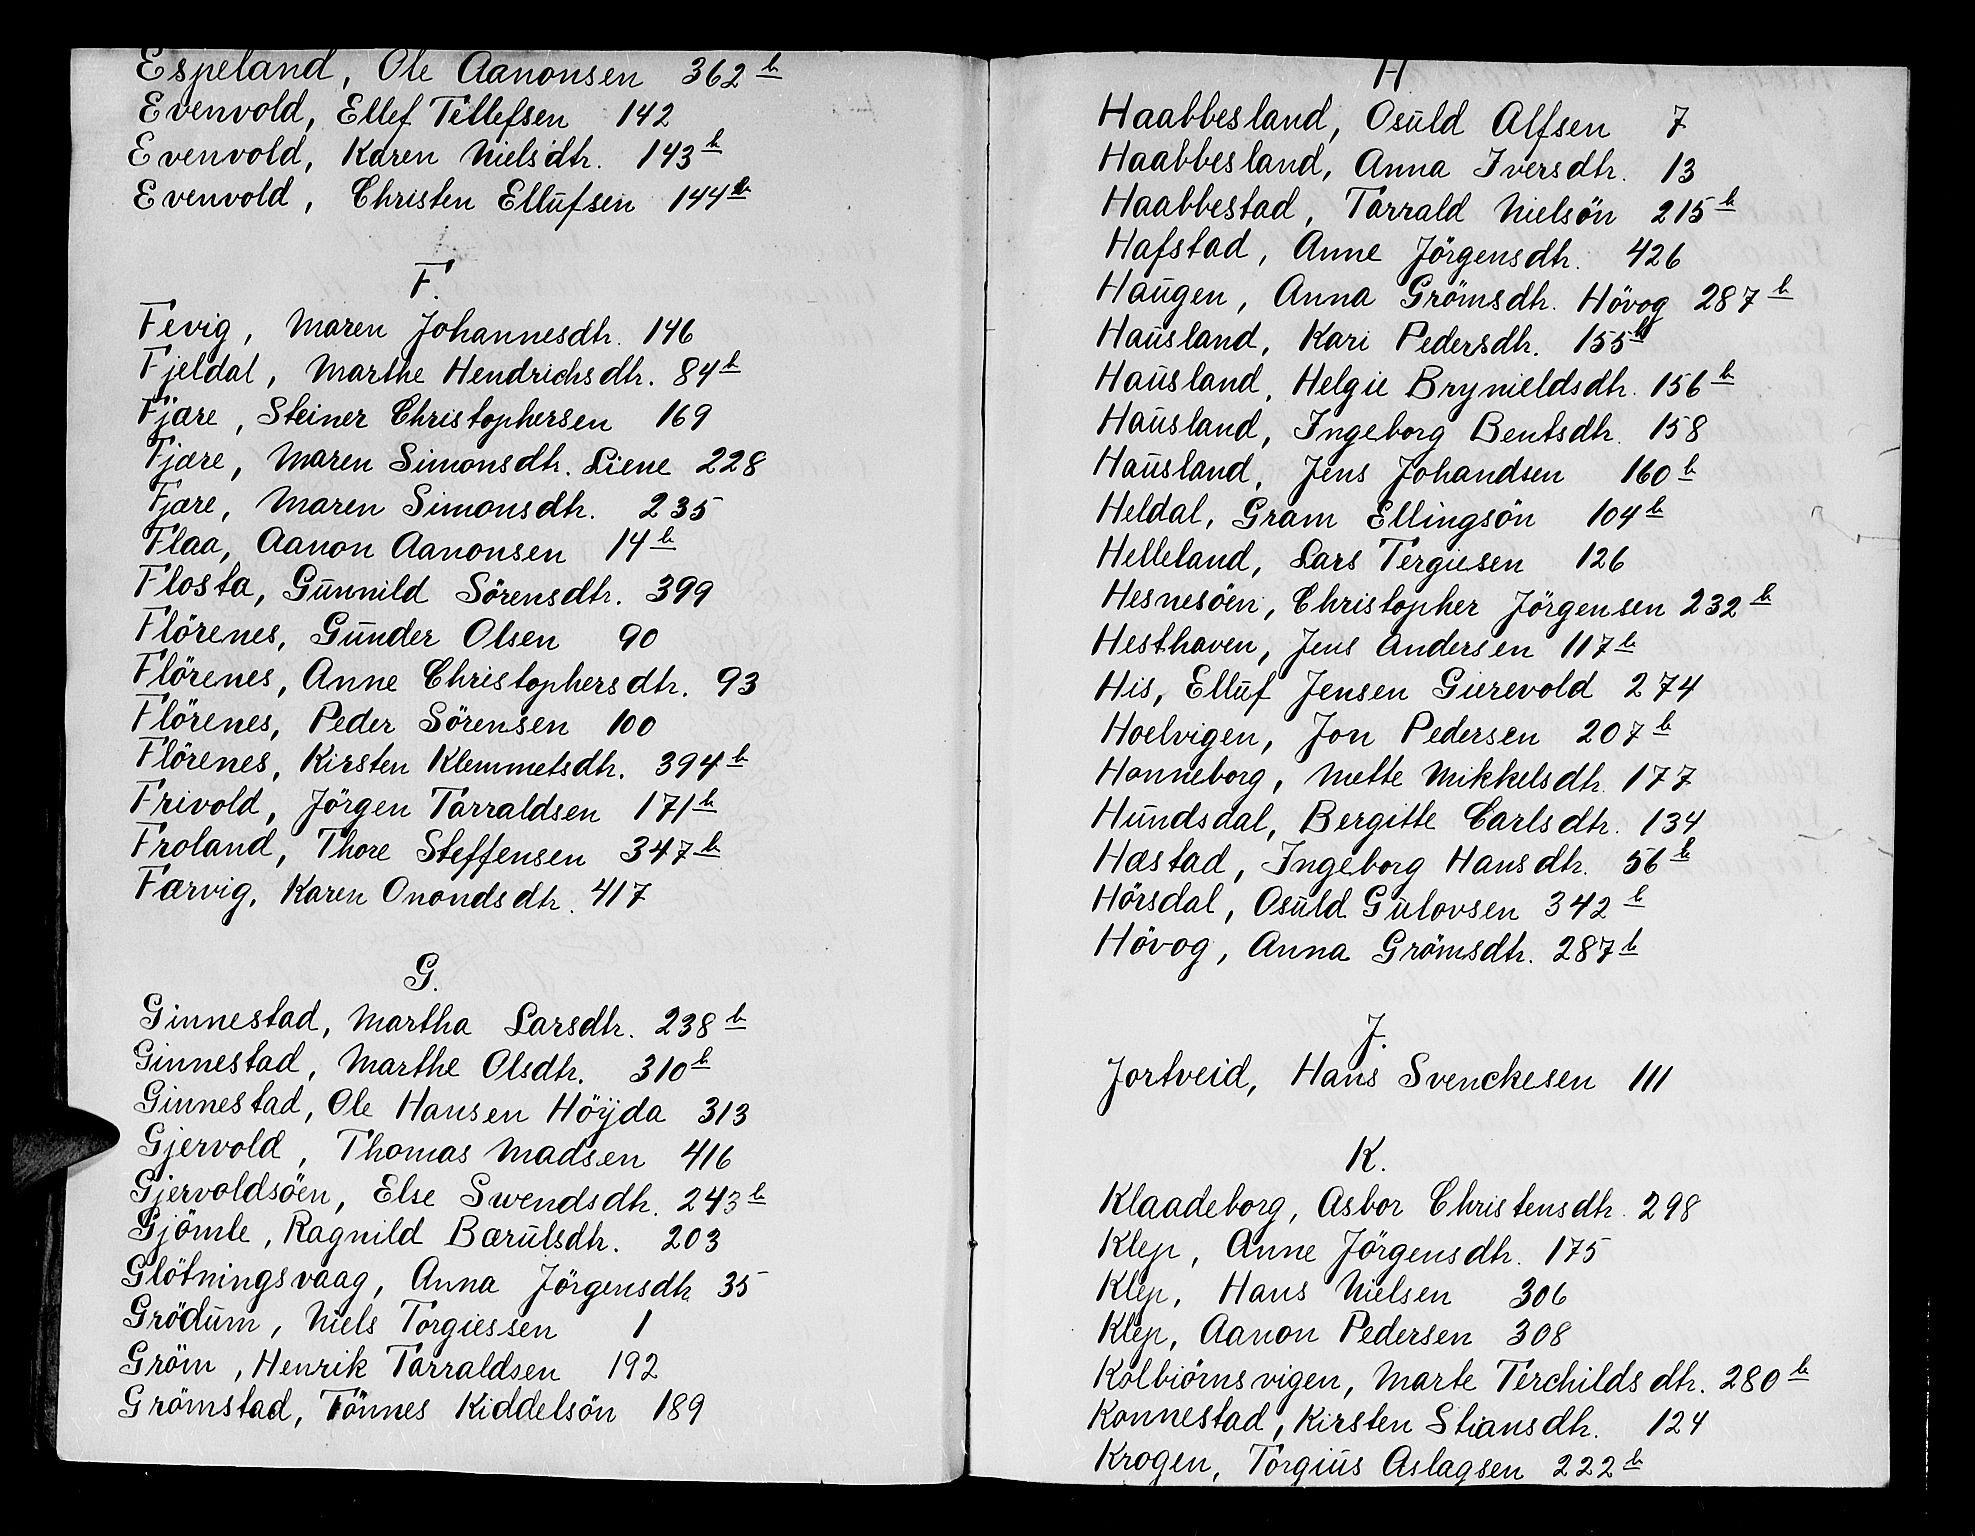 Espeland, Ole Aanonsen 362 b
Evenvold, Ellef Tellefsen 142
Evenvold, Karen Nielsdtr. 143 b
Evenvold, Christen Ellufsen 144 b
F.
Fevig, Maren Johannesdtr. 146
Fjeldal, Marthe Hendrichsdtr. 84 b
Fjære, Steiner Christophersen 169
Fjære, Maren Simonsdtr. Liene 228
Fjære, Maren Simonsdtr. 235
Flaa, Aanon Aanonsen 14 b
Flosta, Gunnild Sörensdtr. 399
Flörenes, Gunder Olsen 90
Flörenes, Anne Christophersdtr. 93
Flörenes, Peder Sörensen 100
Flörenes, Kirsten Klemmetsdtr. 394 b
Frivold, Jörgen Tarraldsen 171 b
Froland, Thore Steffensen 347 b
Færvig, Karen Onondsdtr. 417
G.
Ginnestad, Martha Larsdtr. 238 b
Ginnestad, Marthe Olsdtr. 310 b
Ginnestad, Ole Hansen Höÿda 313
Gjervold, Thomas Madsen 416
Gjervoldsöen, Else Swendsdtr. 243 b
Gjömle, Ragnild Bærulsdtr. 203
Glötningsvaag, Anna Jörgensdtr 35
Grödum, Niels Torgiessen 1
Gröm, Henrik Tarraldsen 192
Grömstad, Tönnes Kiddelsön 189
H
Haabbesland, Osuld Alfsen 7
Haabbesland, Anna Iversdtr. 13
Haabbestad, Tarrald Nielsön 215 b
Hafstad, Anne Jörgensdtr. 426
Haugen, Anna Grömsdtr. Hövog 287 b
Hausland, Kari Pedersdtr. 155 b
Hausland, Helgie Brynieldsdtr. 156 b
Hausland, Ingeborg Bentsdtr. 158
Hausland, Jens Johandsen 160 b
Heldal, Gram Ellingsön 104 b
Helleland, Lars Tergiesen 126
Hesnesöen, Christopher Jörgensen 232 b
Hesthaven, Jens Andersen 117 b
His, Elluf Jensen Gierevold 274
Hoelvigen, Jon Pedersen 207 b
Honneborg, Mette Mikkelsdtr. 177
Hundsdal, Bergitte Carlsdtr. 134
Hæstad, Ingeborg Hansdtr. 56 b
Hörsdal, Osuld Gulovsen 342 b
Hövog, Anna Grömsdtr. 287 b
J.
Jortveid, Hans Svenckesen 111
K.
Klaadeborg, Asbor Christensdtr. 298
Klep, Anne Jörgensdtr. 175
Klep, Hans Nielsen 306
Klep, Aanon Pedersen 308
Kolbiörnsvigen, Marte Terchildsdtr. 280 b
Konnestad, Kirsten Stiansdtr. 124
Krogen, Torgius Aslagsen 222 b